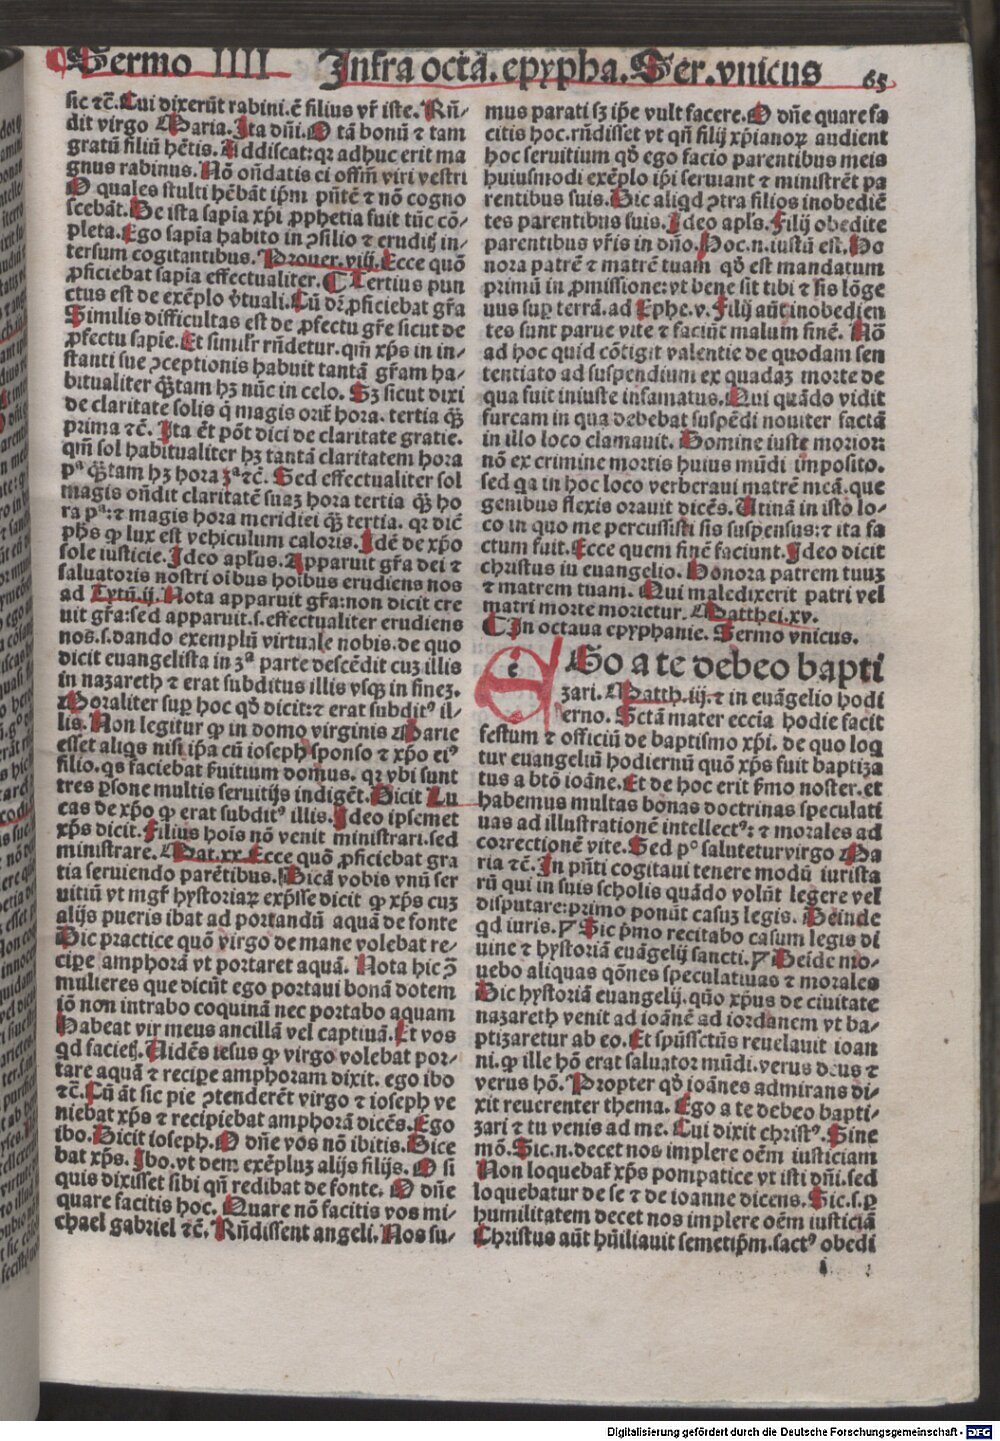 Sermo IIII Infra octā. epypha. Ser. vnicus 65
sic ⁊c̄. Cui dixerūt rabini. ē filius vr̄ iste. Rn̄-
dit virgo Maria. Ita dn̄i. O tā bonū ⁊ tam
gratū filiū hētis. Addiscat: qꝛ adhuc erit ma
gnus rabinus. Nō on̄datis ei offm̄ viri vestri
O quales stulti hēbāt ip̄m pn̄tē ⁊ nō cogno
scebāt. De ista sapīa xp̄i ꝓphetia fuit tūc cō-
pleta. Ego sapīa habito in ꝯsilio ⁊ eruditꝭ in-
tersum cogitantibus. Prouer. viij. Ecce quō
ꝓficiebat sapīa effectualiter. ¶ Tertius pun
ctus est de exēplo v̓tuali. Cū dꝛ̄ ꝓficiebat gr̄a
Similis difficultas est de ꝓfectu gr̄e sicut de
ꝓfectu sapīe. Et simil̓r rn̄detur. qm̄ xp̄s in in-
stanti sue ꝯceptionis habuit tantā gr̄am ha-
bitualiter qȝ̄tam hȝ nūc in celo. Sȝ sicut dixi
de claritate solis q̇ magis orit̄ hora. tertia qȝ̄
prima ⁊c̄. Ita ēt pōt dici de claritate gratie.
qm̄ sol habitualiter hȝ tantā claritatem hora
pᵃ qȝ̄tam hȝ hora 3ᵃ ⁊c̄. Sed effectualiter sol
magis on̄dit claritatē suaȝ hora tertia qȝ̄ ho
ra pᵃ: ⁊ magis hora meridiei qȝ̄ tertia. qꝛ dic̄
ph̄s ꝙ lux est vehiculum caloris. Idē de xp̄o
sole iusticie. Ideo apl̓us. Apparuit gr̄a dei ⁊
saluatoris nostri oībus hoībus erudiens nos
ad Tytū. ij. Nota apparuit gr̄a: non dicit cre
uit gr̄a: sed apparuit. s. effectualiter erudiens
nos. s. dando exemplū virtuale nobis. de quo
dicit euangelista in 3ᵃ parte descēdit cuȝ illis
in nazareth ⁊ erat subditus illis vsqȝ in fineȝ.
Moraliter suꝑ hoc qd̄ dicit: ⁊ erat subditꝰ il-
lis. Non legitur ꝙ in domo virginis Marie
esset aliqs nisi ip̄a cū ioseph sponso ⁊ xp̄o eiꝰ
filio. qs faciebat ẜuitium domus. qꝛ vbi sunt
tres ꝑsone multis seruitijs indigēt. Dicit Lu
cas de xp̄o ꝙ erat subditꝰ illis. Ideo ipsemet
xp̄s dicit. Filius hoīs nō venit ministrari. sed
ministrare. Mat. xx. Ecce quō ꝓficiebat gra
tia seruiendo parētibus. Dicā vobis vnū ser
uitiū vt mgr̄ hystoriaꝝ exp̄sse dicit ꝙ xp̄s cuȝ
alijs pueris ibat ad portandū aquā de fonte
Dic practice quō virgo de mane volebat re-
cipe amphorā vt portaret aquā. Nota hic ꝯ̄
mulieres que dicūt ego portaui bonā dotem
iō non intrabo coquinā nec portabo aquam
habeat vir meus ancillā vel captiuā. Et vos
qd facietꝭ. Uidēs iesus ꝙ virgo volebat por-
tare aquā ⁊ recipe amphoram dixit. ego ibo
⁊c̄. Cū āt sic pie ꝯtenderēt virgo ⁊ ioseph ve
niebat xp̄s ⁊ recipiebat amphorā dicēs. Ego
ibo. Dicit ioseph. O dn̄e vos nō ibitis. Dice
bat xp̄s. Ibo. vt dem exēpluȝ alijs filijs. O si
quis dixisset sibi qn̄ redibat de fonte. O dn̄e
quare facitis hoc. Quare nō facitis vos mi-
chael gabriel ⁊c̄. Rn̄dissent angeli. Nos su-
mus parati sȝ ip̄e vult facere. O dn̄e quare fa
citis hoc. rn̄disset vt qn̄ filij xp̄ianoꝝ audient
hoc seruitium qd̄ ego facio parentibus meis
huiusmodi exēplo ip̄i seruiant ⁊ ministrēt pa
rentibus suis. Dic aliqd ꝯtra filios inobediē
tes parentibus suis. Ideo apl̓s. Filij obedite
parentibus vr̄is in dn̄o. Hoc. n. iustū est. Ho
nora patrē ⁊ matrē tuam qd̄ est mandatum
primū in ꝓmissione: vt bene sit tibi ⁊ sis lōge
uus suꝑ terrā. ad Ephe. v. Filij aūt inobedien
tes sunt parue vite ⁊ faciūt malum finē. Nō
ad hoc quid cōtigit valentie de quodam sen
tentiato ad suspendium ex quadaȝ morte de
qua fuit iniuste infamatus. Qui quādo vidit
furcam in qua debebat suspēdi nouiter factā
in illo loco clamauit. Domine iuste morior:
nō ex crimine mortis huius mūdi imposito.
sed qa in hoc loco verberaui matrē meā. que
genibus flexis orauit dicēs. Utinā in isto lo-
co in quo me percussisti sis suspensus: ⁊ ita fa
ctum fuit. Ecce quem finē faciunt. Ideo dicit
christus in euangelio. Honora patrem tuuȝ
⁊ matrem tuam. Qui maledixerit patri vel
matri morte morietur. Matthei. xv.
¶ In octaua epyphanie. Sermo vnicus.
e Go a te debeo bapti
zari. Matth. iij. ⁊ in euāgelio hodi
erno. Sctā mater eccīa hodie facit
festum ⁊ officiū de baptismo xp̄i. de quo loq
tur euangeliū hodiernū quō xp̄s fuit baptiza
tus a btō ioāne. Et de hoc erit ẜmo noster. et
habemus multas bonas doctrinas speculati
uas ad illustrationē intellectꝰ: ⁊ morales ad
correctionē vite. Sed pᵒ salutetur virgo Ma
ria ⁊c̄. In pn̄ti cogitaui tenere modū iurista
rū qui in suis scholis quādo volūt legere vel
disputare: primo ponūt casuȝ legis. Deinde
qd iuris. Sic p̄mo recitabo casum legis di
uine ⁊ hystoriā euāgelij sancti. Deīde mo-
uebo aliquas qōnes speculatiuas ⁊ morales
Dic hystoriā euangelij. qn̄o xp̄us de ciuitate
nazareth venit ad ioānē ad iordanem vt ba-
ptizaretur ab eo. Et sp̄ūssctūs reuelauit ioan
ni. ꝙ ille hō erat saluator mūdi. verus deus ⁊
verus hō. Propter qd̄ ioānes admirans di-
xit reuerenter thema. Ego a te debeo bapti-
zari ⁊ tu venis ad me. Cui dixit christꝰ. Sine
mō. Sic. n. decet nos implere oēm iusticiam
Non loquebat̄ xp̄s pompatice vt isti dn̄i. sed
loquebatur de se ⁊ de ioanne dicens. Sic. s. ꝑ
humilitatem decet nos implere oēm iusticiā
Christus aūt hūiliauit semetip̄m. factꝰ obedi
i
Digitalisierung gefördert durch die Deutsche Forschungsgemeinschaft - DFG